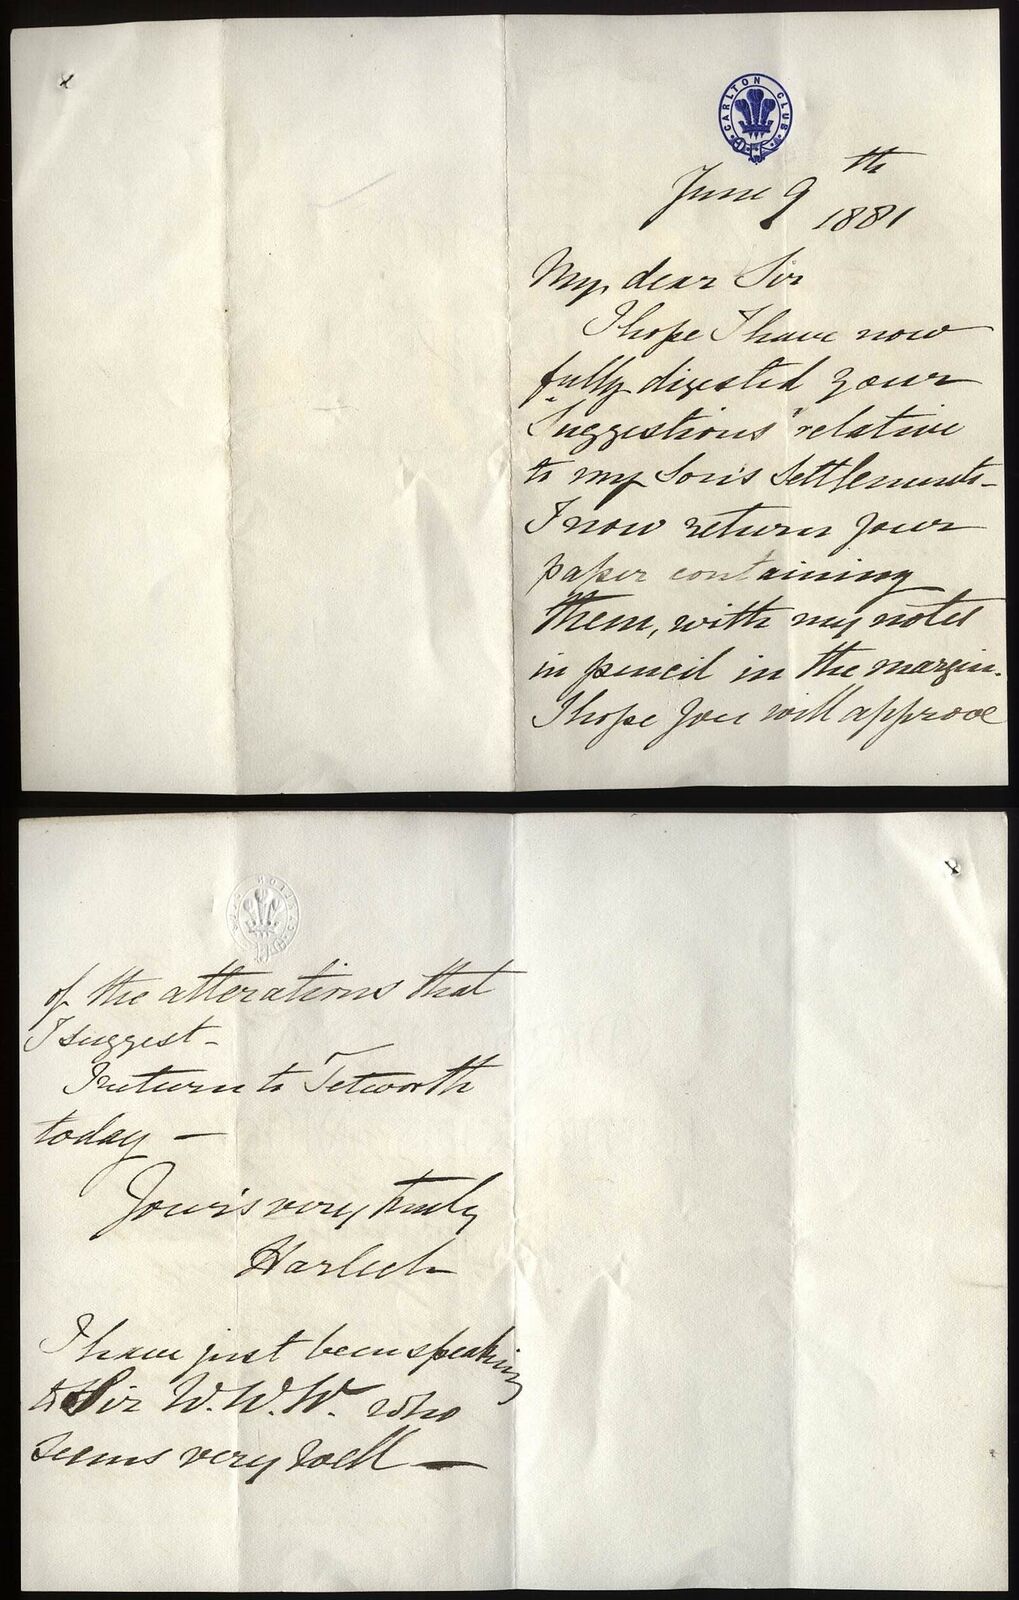 CARLTON CLUB
June 9th
1881
My dear Sir
I hope I have now
fully digested your
"Suggestions" relative
to my Son's Settlements -
I now return your
paper containing
them, with my notes
in pencil in the margin.
I hope you will approve
of the alterations that
I suggest -
I return to Tetworth
today -
Your's very truly
Harlech
I have just been speaking
to Sir W. W. W. who
seems very well -